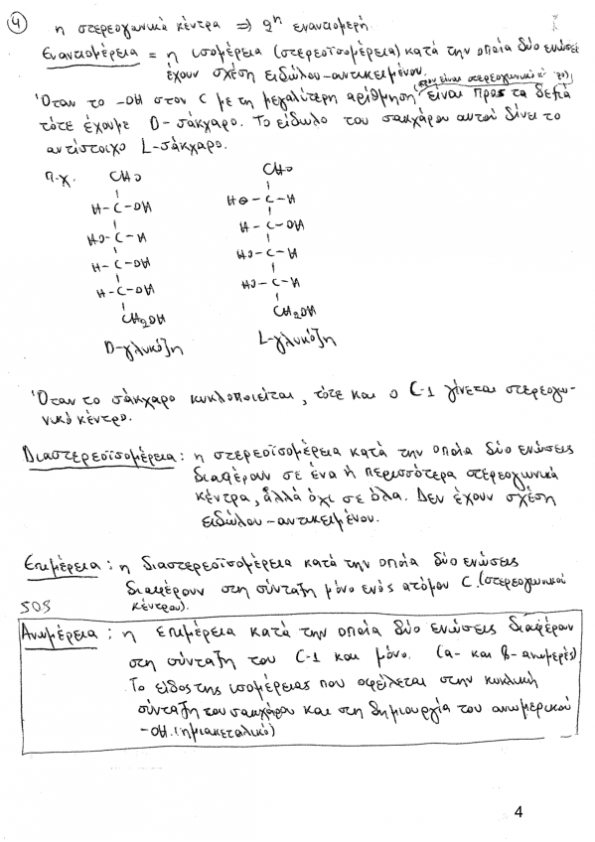 4
η στερεογωνικά κέντρα ⇒ 2ⁿ εναντιομερή.
Εναντιομέρεια = η ισομέρεια (στερεοϊσομέρεια) κατά την οποία δύο ενώσεις
έχουν σχέση ειδώλου-αντικειμένου.
(που είναι στερεογωνικό κ. το)
Όταν το -OH στον C με τη μεγαλύτερη αρίθμηση είναι προς τα δεξιά
τότε έχουμε D-σάκχαρο. Το είδωλο του σακχάρου αυτού δίνει το
αντίστοιχο L-σάκχαρο.
π.χ. CHO CHO
H-C-OH HO-C-H
HO-C-H H-C-OH
H-C-OH HO-C-H
H-C-OH HO-C-H
CH2OH CH2OH
D-γλυκόζη L-γλυκόζη
Όταν το σάκχαρο κυκλοποιείται, τότε και ο C-1 γίνεται στερεογω-
νικό κέντρο.
Διαστερεοϊσομέρεια: η στερεοϊσομέρεια κατά την οποία δύο ενώσεις
διαφέρουν σε ένα ή περισσότερα στερεογωνικά
κέντρα, αλλά όχι σε όλα. Δεν έχουν σχέση
ειδώλου-αντικειμένου.
Επιμέρεια: η διαστερεοϊσομέρεια κατά την οποία δύο ενώσεις
διαφέρουν στη σύνταξη μόνο ενός ατόμου C. (στερεογωνικού
κέντρου).
SOS
Ανωμέρεια: η επιμέρεια κατά την οποία δύο ενώσεις διαφέρουν
στη σύνταξη του C-1 και μόνο. (α- και β-ανωμερές)
Το είδος της ισομέρειας που οφείλεται στην κυκλική
σύνταξη του σακχάρου και στη δημιουργία του ανωμερικού
-OH. (ημιακεταλικό)
4